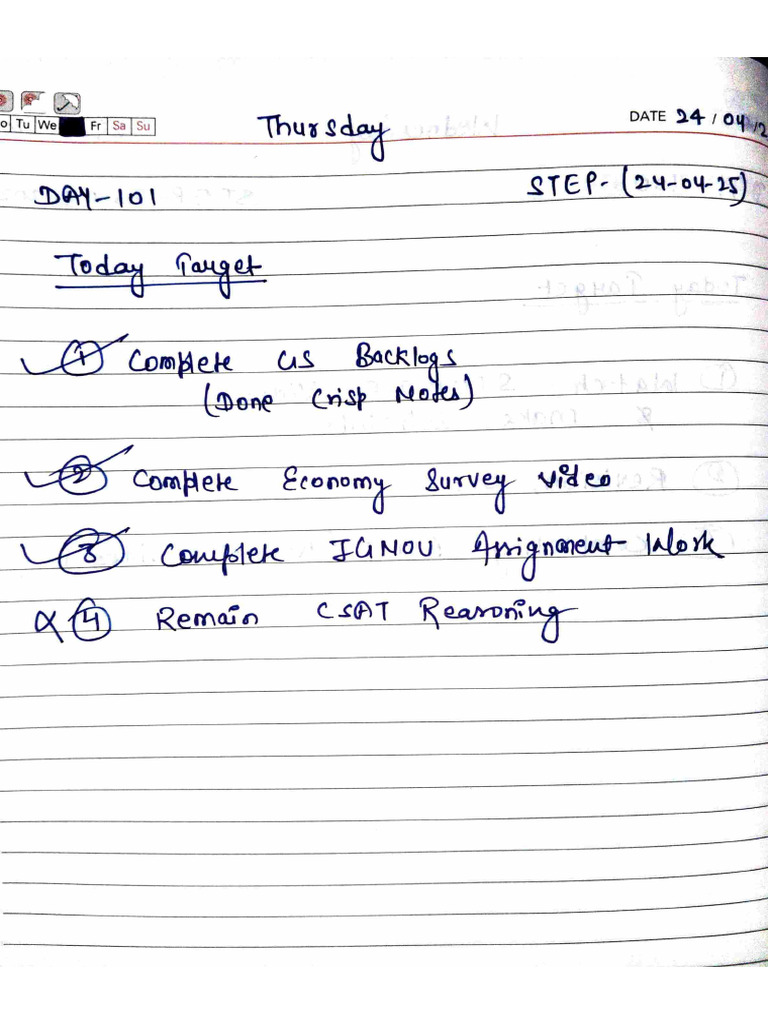 Tu We Fr Sa Su
Thursday
DATE 24 / 04 /2
DAY-101
STEP-(24-04-25)
Today Target
1 Complete GS Backlogs
(Done Crisp Notes)
2 Complete Economy Survey video
3 Complete IGNOU Assignment Work
4 Remain CSAT Reasoning